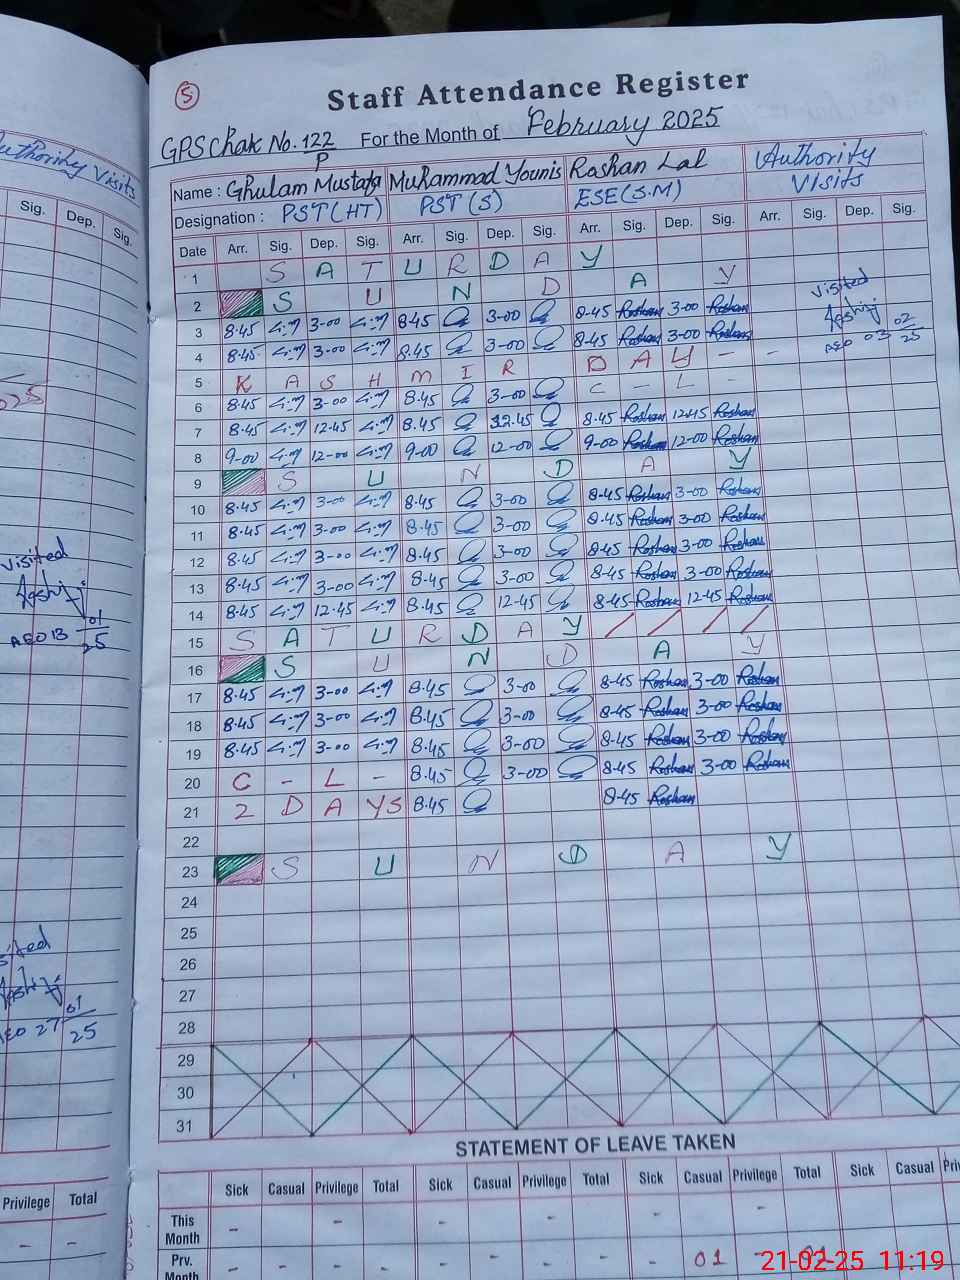 5
Staff Attendance Register
GPS Chak No. 122/P For the Month of February 2025
Name : Ghulam Mustafa Muhammad Younis Roshan Lal Authority Visits
Designation : PST (HT) PST (S) ESE (S.M)
Date Arr. Sig. Dep. Sig. Arr. Sig. Dep. Sig. Arr. Sig. Dep. Sig. Arr. Sig. Dep. Sig.
1 S A T U R D A Y
2 S U N D A Y
3 8-45 3-00 8-45 3-00 8-45 Roshan 3-00 Roshan visited
4 8-45 3-00 8-45 3-00 8-45 Roshan 3-00 Roshan AEO 03 02/25
5 K A S H M I R D A Y - -
6 8-45 3-00 8-45 3-00 C - L -
7 8-45 12-45 8-45 12-45 8-45 Roshan 12-45 Roshan
8 9-00 12-00 9-00 12-00 9-00 Roshan 12-00 Roshan
9 S U N D A Y
10 8-45 3-00 8-45 3-00 8-45 Roshan 3-00 Roshan
11 8-45 3-00 8-45 3-00 8-45 Roshan 3-00 Roshan
12 8-45 3-00 8-45 3-00 8-45 Roshan 3-00 Roshan
13 8-45 3-00 8-45 3-00 8-45 Roshan 3-00 Roshan
14 8-45 12-45 8-45 12-45 8-45 Roshan 12-45 Roshan
15 S A T U R D A Y / / / /
16 S U N D A Y
17 8-45 3-00 8-45 3-00 8-45 Roshan 3-00 Roshan
18 8-45 3-00 8-45 3-00 8-45 Roshan 3-00 Roshan
19 8-45 3-00 8-45 3-00 8-45 Roshan 3-00 Roshan
20 C - L - 8-45 3-00 8-45 Roshan 3-00 Roshan
21 2 D A YS 8-45 8-45 Roshan
22
23 S U N D A Y
24
25
26
27
28
29
30
31
STATEMENT OF LEAVE TAKEN
Sick Casual Privilege Total Sick Casual Privilege Total Sick Casual Privilege Total Sick Casual Pri
This Month - - - - - -
Prv. Month - - - - 01 - 01
Authority Visits
Sig. Dep. Sig.
025
visited
AEO 13 01/25
sited
AEO 27 01/25
Privilege Total
- -
21-02-25 11:19